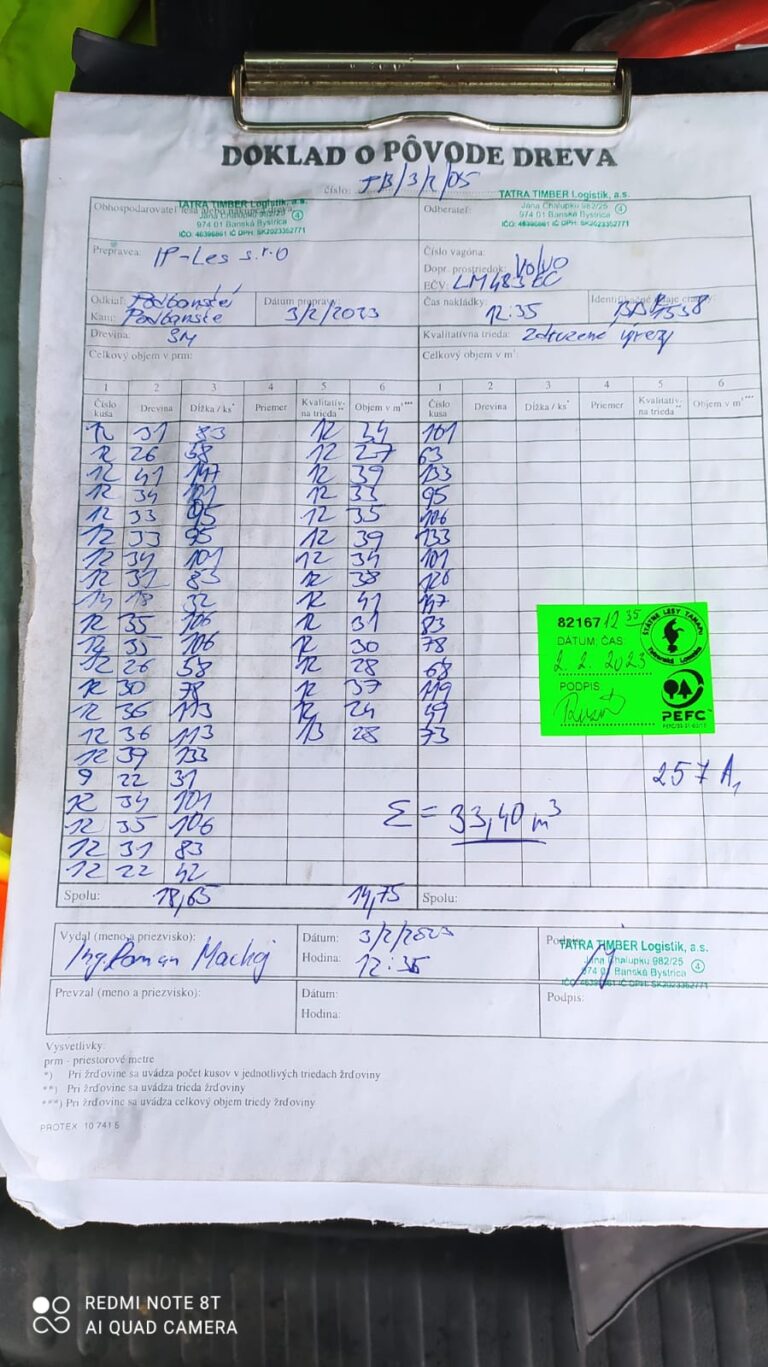 DOKLAD O PÔVODE DREVA
číslo: TB/3/2/05
TATRA TIMBER Logistik, a.s.
Jána Chalupku 982/25
974 01 Banská Bystrica
IČO: 46396861 IČ DPH: SK2023352771
4
Odberateľ: TATRA TIMBER Logistik, a.s.
Jána Chalupku 982/25
974 01 Banská Bystrica
IČO: 46396861 IČ DPH: SK2023352771
4
Prepravca: IP-Les s.r.o
Číslo vagóna:
Dopr. prostriedok: VOLVO
EČV: LM483EC
Odkiaľ: Podbanské
Kam: Podbanské
Dátum prepravy: 3/2/2023
Čas nakládky: 12:35
Drevina: SM
Kvalitatívna trieda: Združené výrezy
Celkový objem v prm:
Celkový objem v m³:
1 2 3 4 5 6 1 2 3 4 5 6
Číslo kusa Drevina Dĺžka / ks* Priemer Kvalitatív- na trieda** Objem v m³*** Číslo kusa Drevina Dĺžka / ks* Priemer Kvalitatív- na trieda** Objem v m³***
12 31 83 12 34 101
12 26 58 12 27 63
12 41 147 12 39 133
12 34 101 12 33 95
12 33 95 12 35 106
12 33 95 12 39 133
12 34 101 12 34 101
12 31 83 12 38 126
18 32 12 41 147
12 35 106 12 31 83
12 35 106 12 30 78
12 26 58 12 28 68
12 30 78 12 37 119
12 36 113 12 24 49
12 36 113 13 28 73
12 39 133
9 22 31
12 34 101
12 35 106
12 31 83
12 22 42
82167 12 35
DÁTUM, ČAS:
2. 2. 2023
PODPIS
ŠTÁTNE LESY TANAPu
Tatranská Lomnica
PEFC
257 A1
Σ = 33,40 m³
Spolu: 18,65 14,75 Spolu:
Vydal (meno a priezvisko):
Ing. Roman Machaj
Dátum: 3/2/2023
Hodina: 12:35
TATRA TIMBER Logistik, a.s.
Jána Chalupku 982/25
974 01 Banská Bystrica
IČO: 46396861 IČ DPH: SK2023352771
4
Prevzal (meno a priezvisko):
Dátum:
Hodina:
Podpis:
Vysvetlivky:
prm - priestorové metre
*) Pri žrďovine sa uvádza počet kusov v jednotlivých triedach žrďoviny
**) Pri žrďovine sa uvádza trieda žrďoviny
***) Pri žrďovine sa uvádza celkový objem triedy žrďoviny
PROTEX 10 741 5
REDMI NOTE 8T
AI QUAD CAMERA